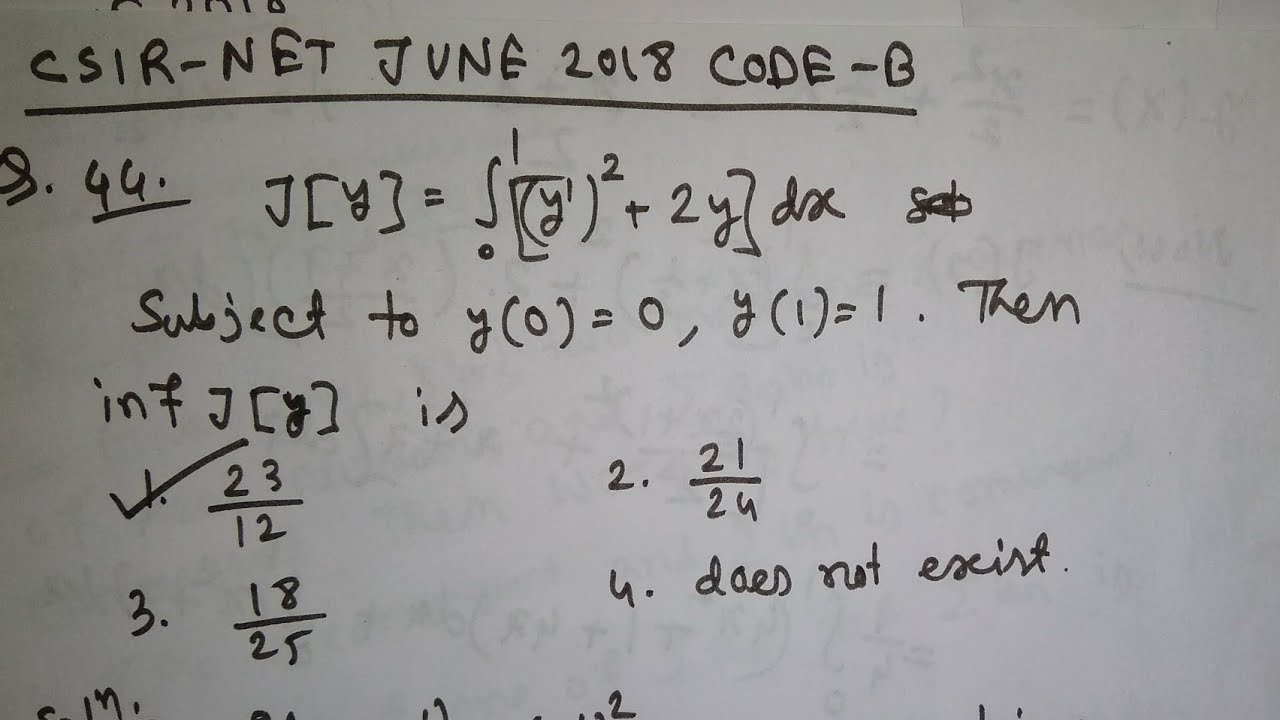 CSIR-NET JUNE 2018 CODE-B
Q. 44. J[y] = ∫₀¹ [(y')² + 2y] dx
Subject to y(0) = 0, y(1) = 1. Then
inf J[y] is
1. 23/12 2. 21/24
3. 18/25 4. daes not exist.
Solⁿ.